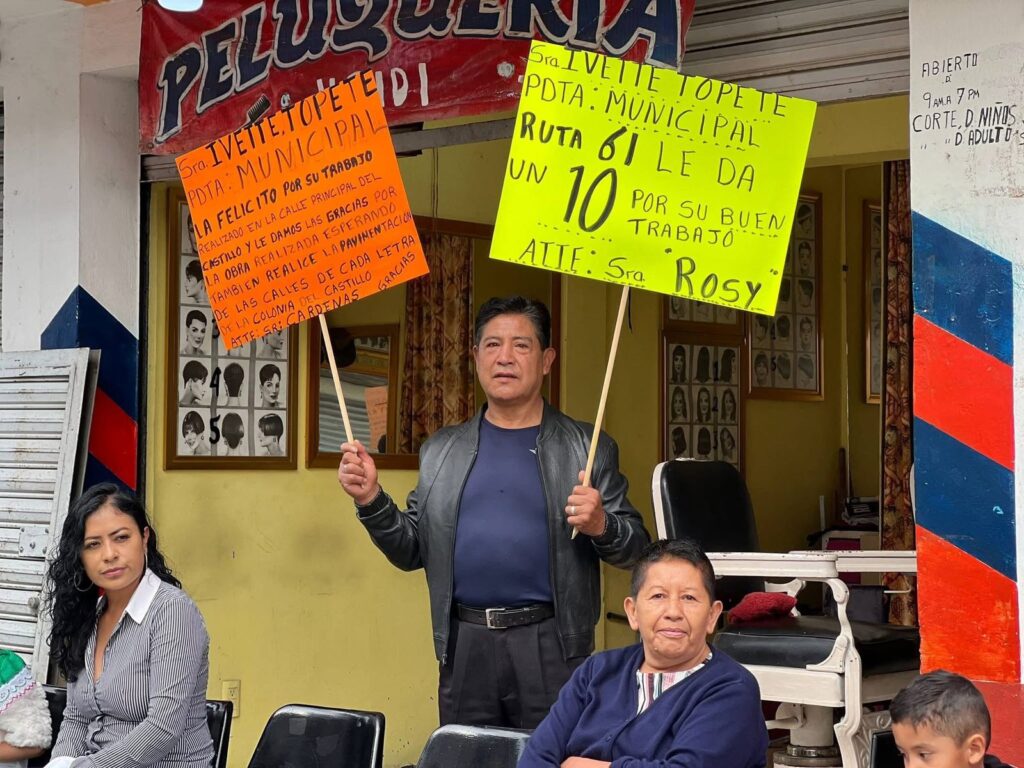 PELUQUERIA
IDI
Sra IVETTE TOPETE
PDTA: MUNICIPAL
LA FELICITO POR SU TRABAJO
REALIZADO EN LA CALLE PRINCIPAL DEL
CASTILLO Y LE DAMOS LAS GRACIAS POR
LA OBRA REALIZADA ESPERANDO
TAMBIEN REALICE LA PAVINENTACIÓN
DE LAS CALLES DE CADA LETRA
DE LA COLONIA DEL CASTILLO GRACIAS
ATTE: SR: CARDENAS GRACIAS
Sra IVETTE TOPETE
PDTA: MUNICIPAL
RUTA 61 LE DA
UN 10 POR SU BUEN
TRABAJO
ATTE: Sra "ROSY"
ABIERTO
D'
9 AM. A 7 PM
CORTE D. NIÑOS
" " D'ADULTO
4
5